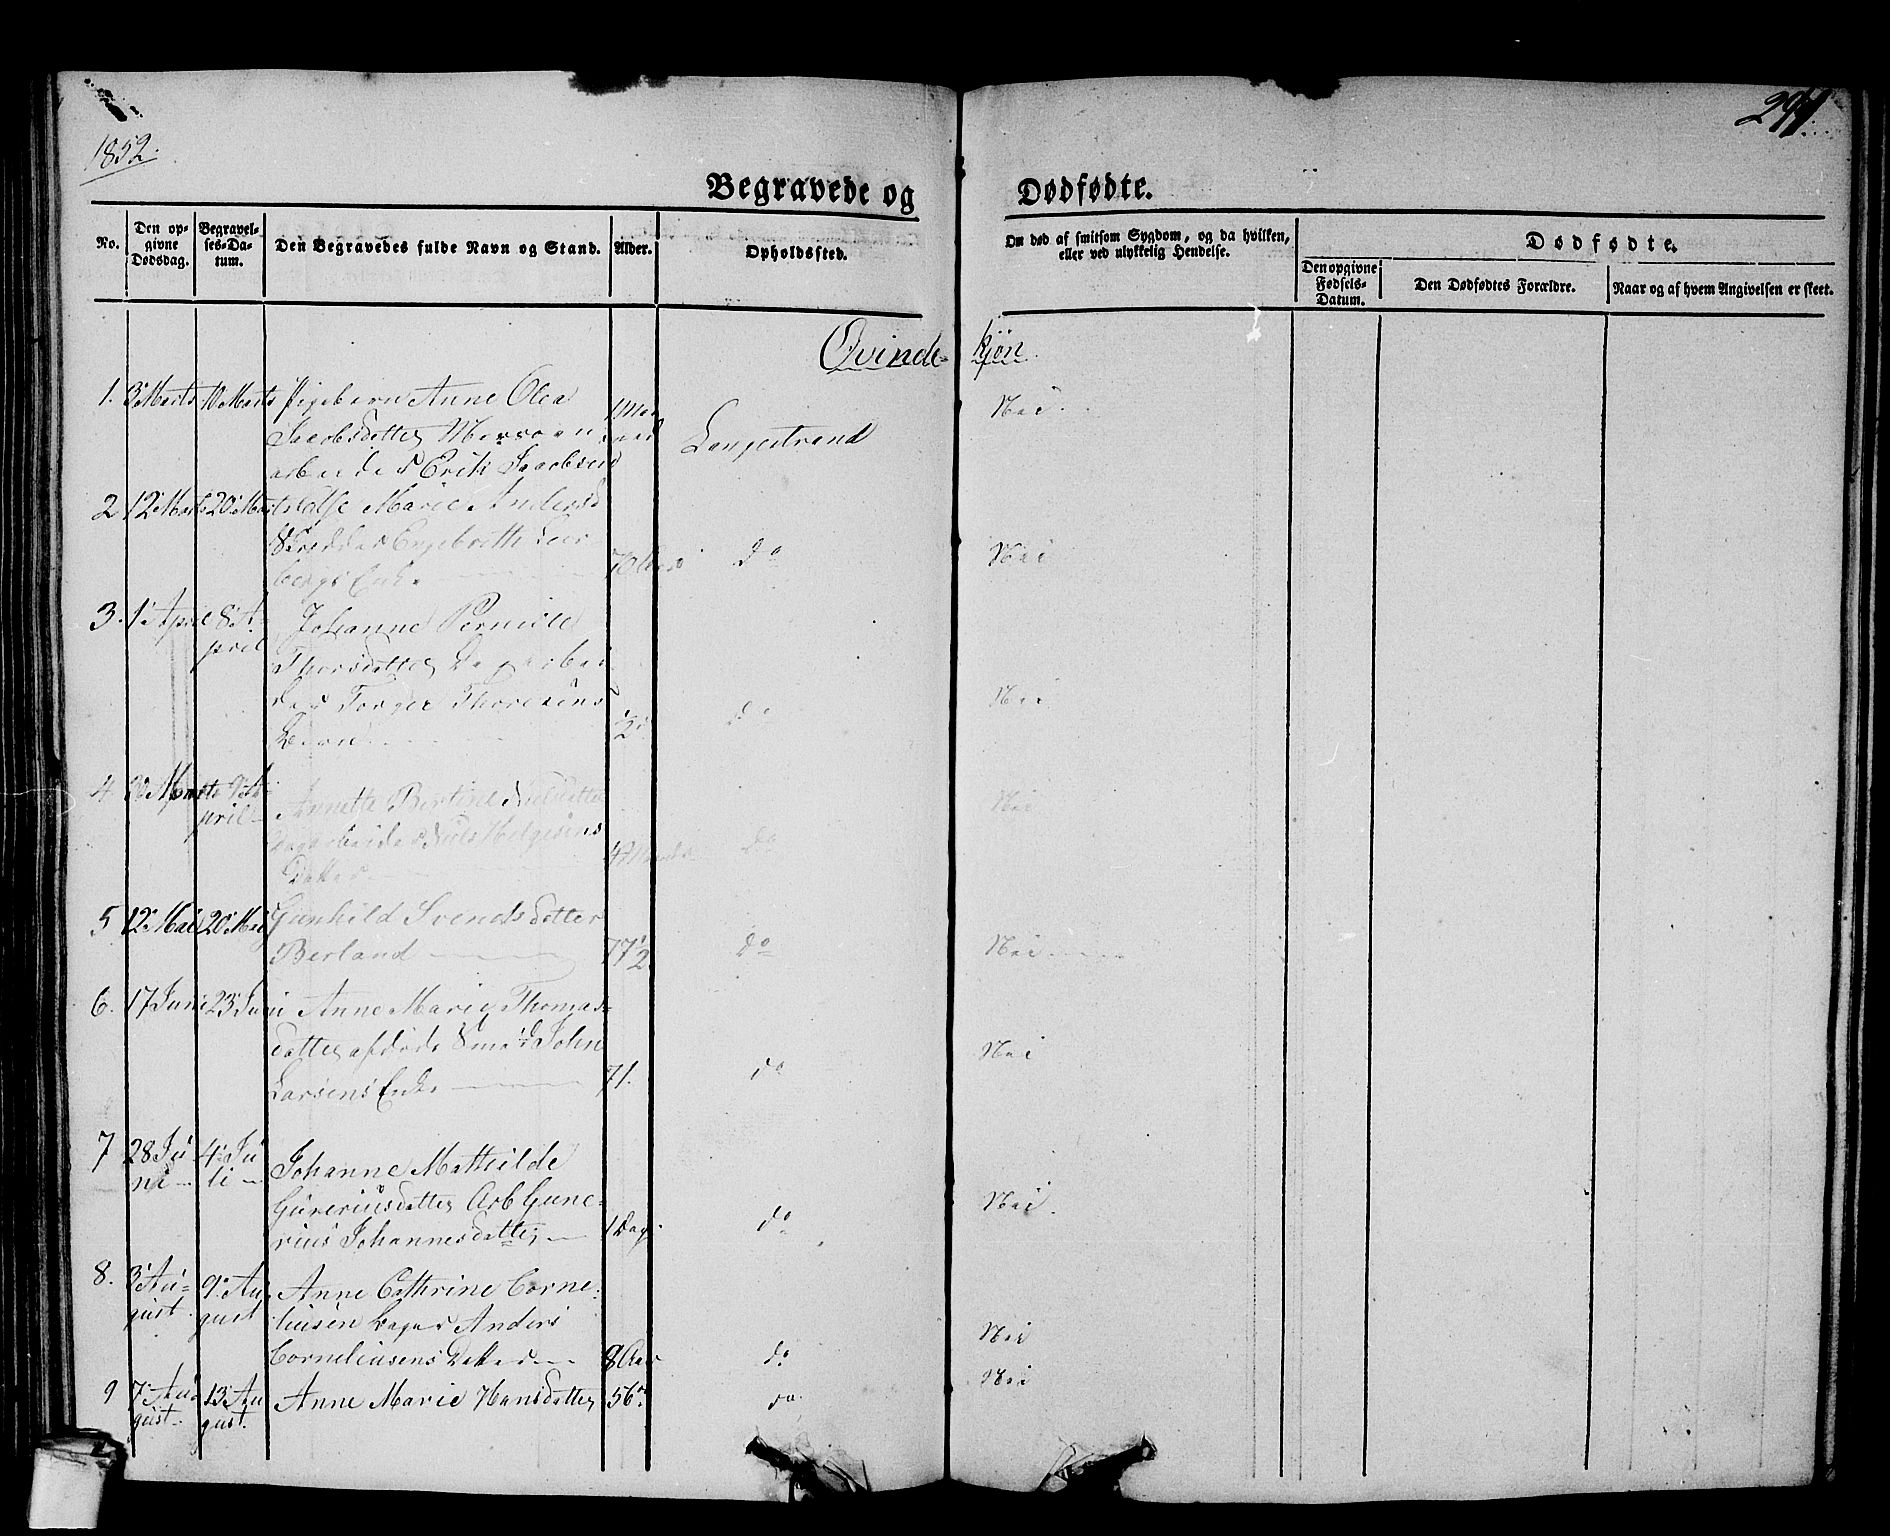 1852.
291
Begravede og Dødfødte.
No.
Den op-
givne
Dødsdag.
Begravel-
ses-Da-
tum.
Den Begravedes fulde Navn og Stand.
Alder.
Opholdssted.
Om død af smitsom Sygdom, og da hvilken,
eller ved ulykkelig Hendelse.
Dødfødte.
Den opgivne
Fødsels-
Datum.
Den Dødfødtes Forældre.
Naar og af hvem Angivelsen er skeet.
Qvinde- kjøn.
1. 3 Marts 10 Marts Pigebarn Anne Olea
Jacobsdatter
Erik Jacobsens
Langestrand
Nei
2 12 Marts 20 Marts Else Marie Anders d
Engebreth
bergs Enke 70 Aar do Nei
3. 1 April 8 A
pril
Johanne Pernille
Thorsdatter Dagarbei
der Torger Thoresens
1/2 do Nei
4 30 Marts 9 A
pril
Annette Bertine Nielsdatter
Dagarbeider Niels Helgesens
Datter 4 do Nei
5 12 Mai 20 Mai Gunhild Svendsdatter
Berland 77 1/2 do Nei
6. 17 Juni 23 Juni Anne Marie Thomas-
datter afdøde Smed John
Larsens Enke 71. do Nei
7 28 Ju
ni 4 Ju
li
Johanne Mathilde
Guneriusdatter Arb Gune-
rius Johannesdatter 1 Dag do Nei.
8. 3 Au-
gust 9 Au
gust
Anne Cathrine Corne-
liusen Anders
Corneliusens Datter 8 Aar do Nei
9 7 Au
gust 13 Au
gust.
Anne Marie Hansdatter 56 do Nei